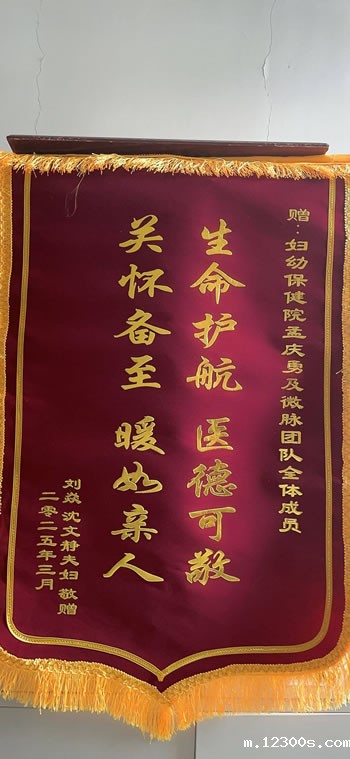 赠：妇幼保健院孟庆勇及微脉团队全体成员
生命护航 医德可敬
关怀备至 暖如亲人
刘焱 沈文静夫妇 敬赠
二零二五年三月
m.12300s.com